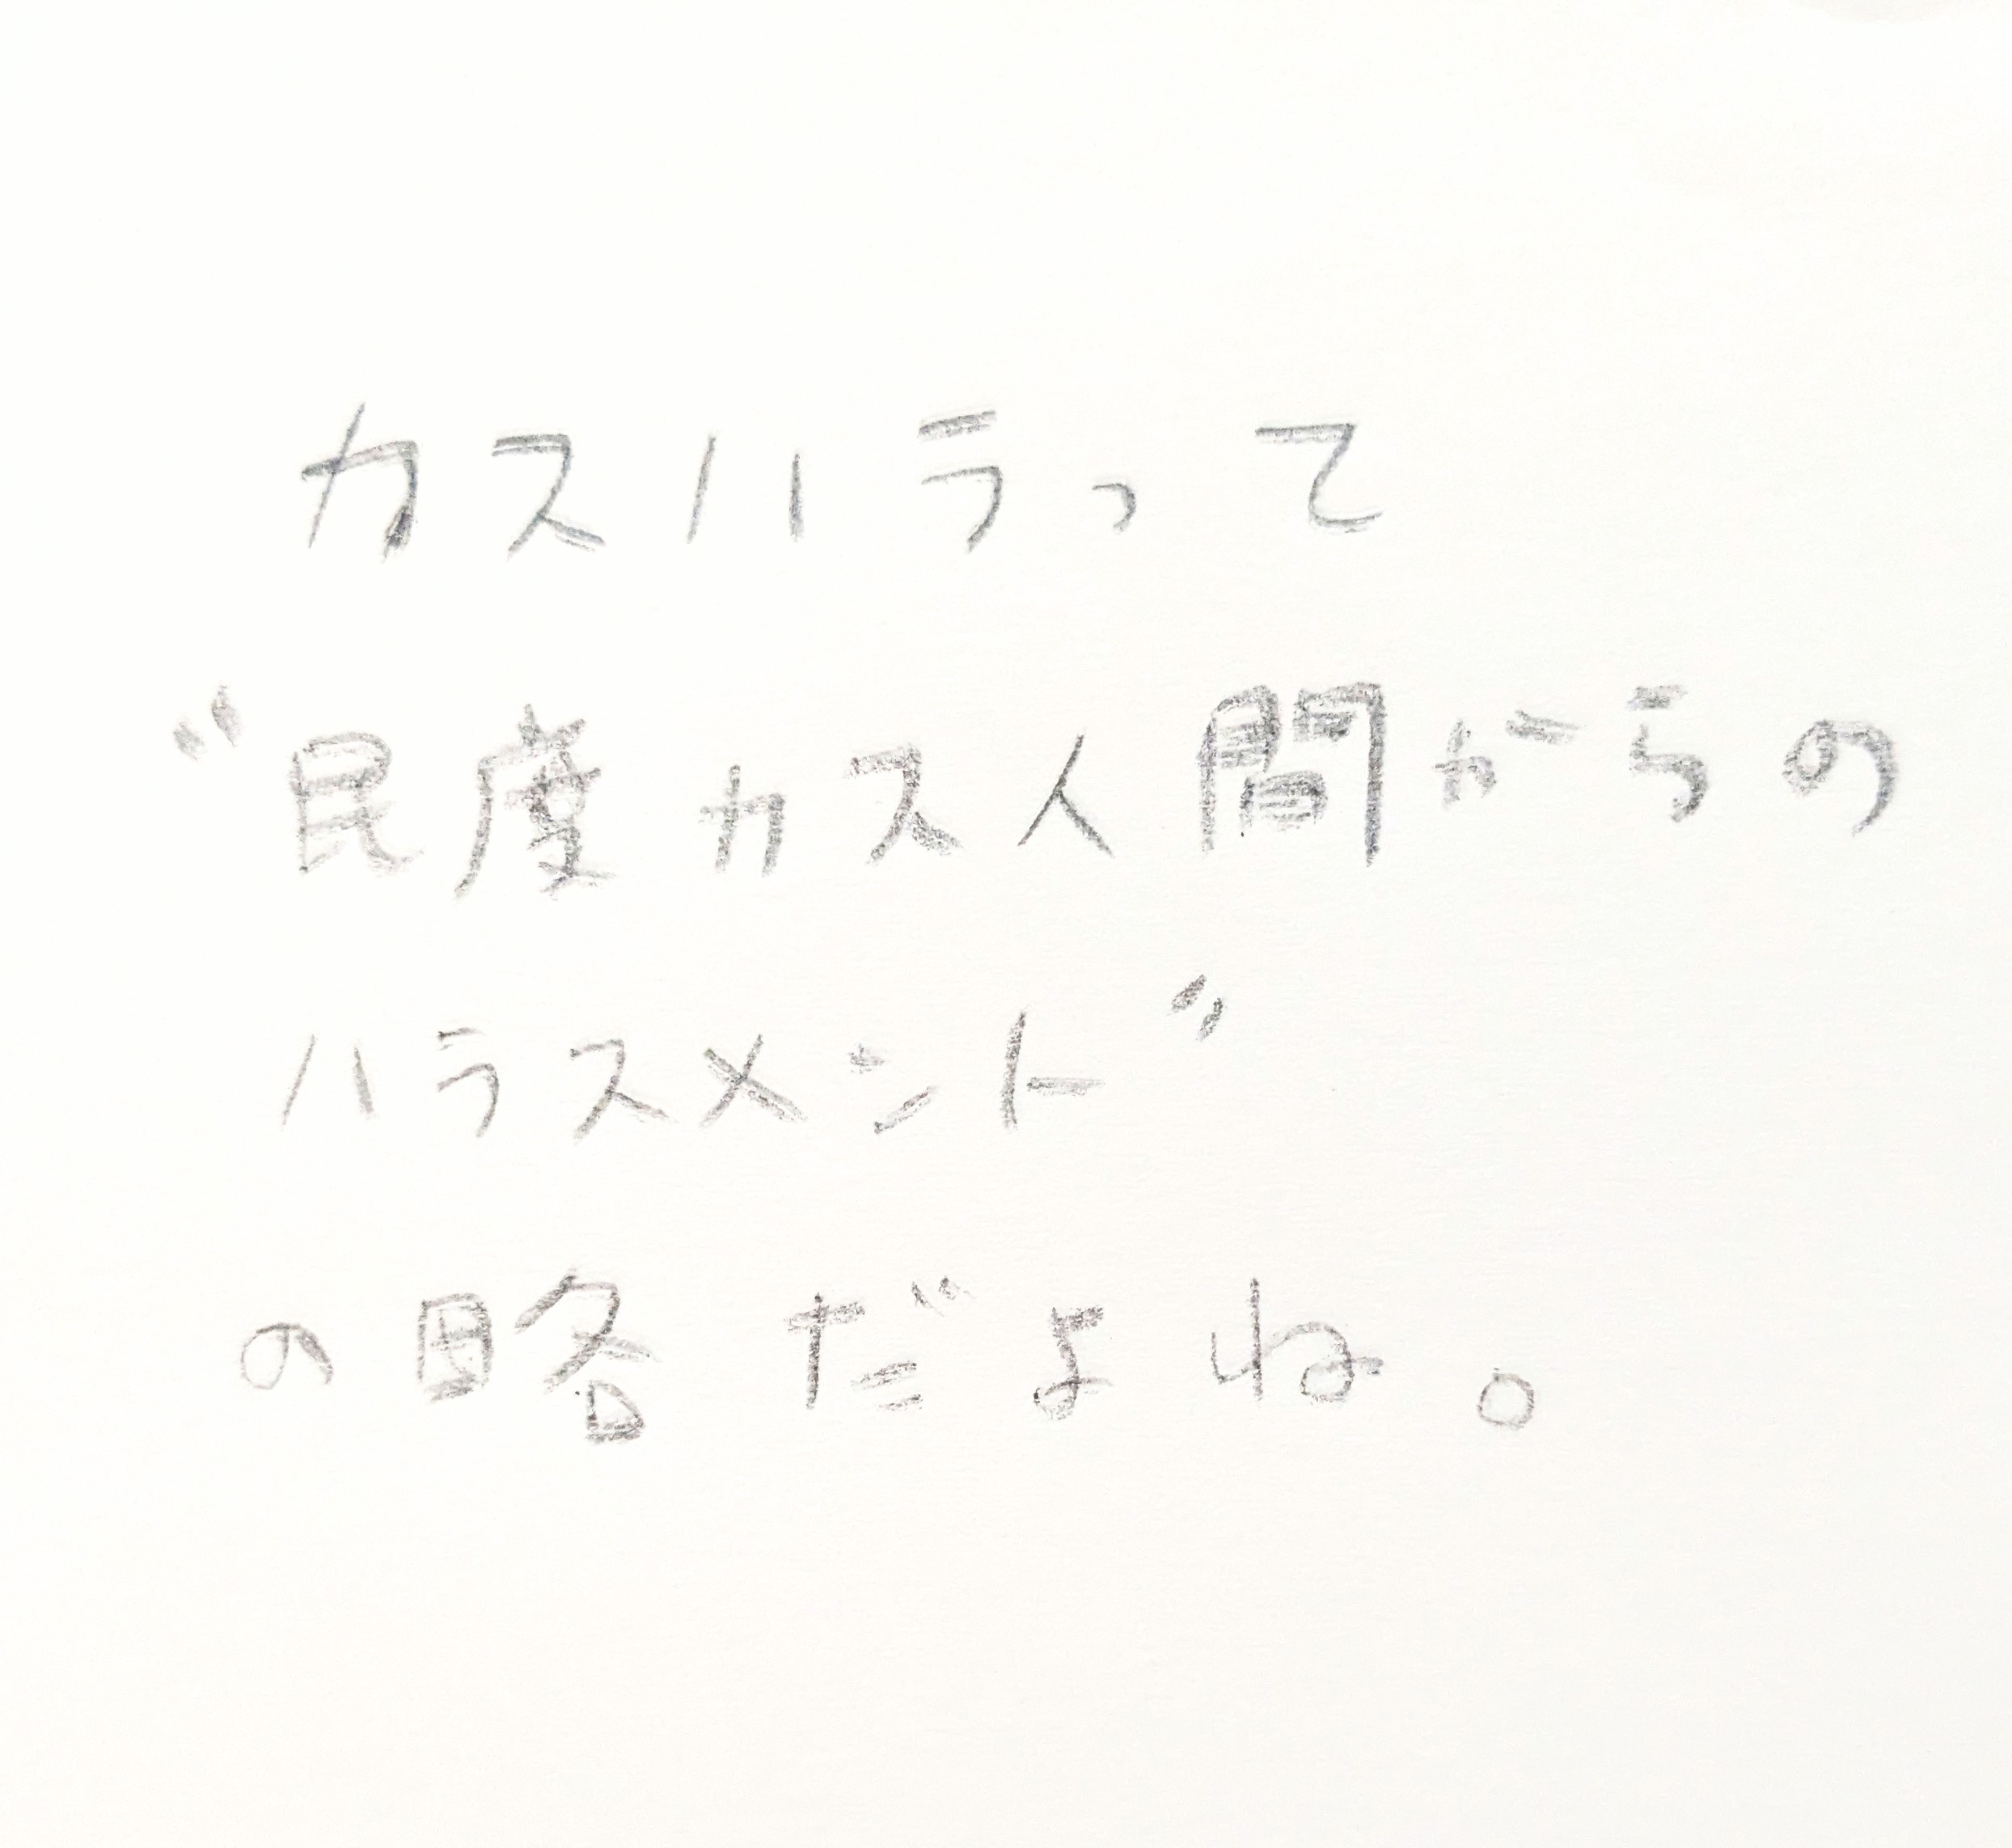 カスハラって
〝民度カス人間からの
ハラスメント〞
の略だよね。